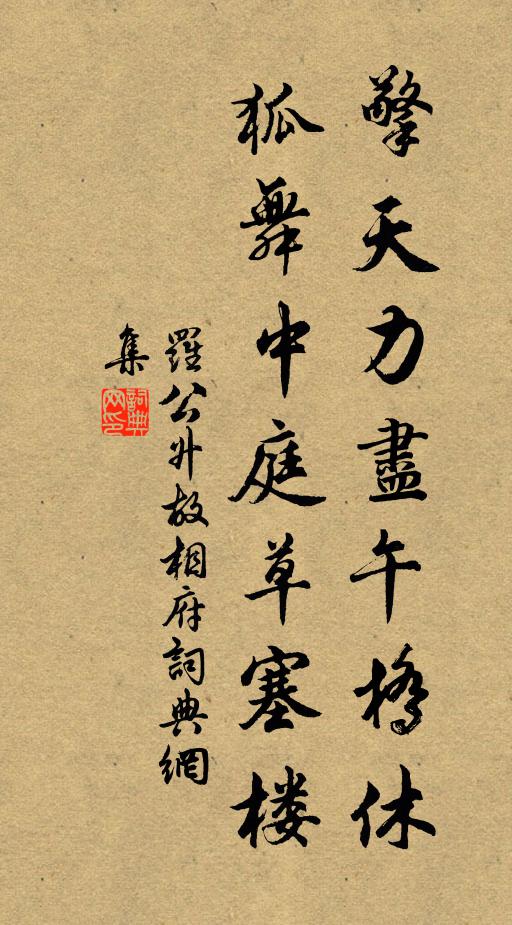 擎天力盡午橋休
狐舞中庭草塞楼
羅公升故相府詞典網
集
詞典
网印